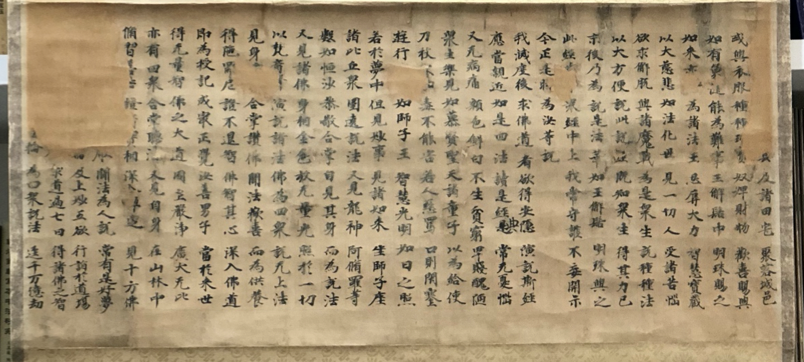 及諸田宅 聚落城邑
或與衣服 種種珍 奴婢財物 歡喜賜與
如有勇健 能為難事 王解髻中 明珠賜之
如來 為諸法王 忍辱大力 智慧寶藏
以大慈悲 如法化世 見一切人 受諸苦惱
欲求解脫 與諸魔戰 為是衆生 說種種法
以大方便 說此諸經 既知衆生 得其力已
末後乃為 說是法華 如王解髻 明珠與之
此經 衆經中上 我常守護 不妄開示
今正是時 為汝等說
我滅度後 求佛道者 欲得安隱 演說斯經
應當親近 如是四法 讀是經者 常无憂惱
又无病痛 顏色鮮白 不生貧窮 卑賤醜陋
衆生樂見 如慕賢聖 天諸童子 以為給使
刀杖 毒不能害 若人惡罵 口則閉塞
遊行 如師子王 智慧光明 如日之照
若於夢中 但見妙事 見諸如來 坐師子座
諸比丘衆 圍遶說法 又見龍神 阿脩羅等
數如恒沙 恭敬合掌 自見其身 而為說法
又見諸佛 身相金色 放无量光 照於一切
以梵音 演說諸法 佛為四衆 說无上法
見身 合掌讚佛 聞法歡喜 而為供養
得陁羅尼 證不退智 佛知其心 深入佛道
即為授記 成最正覺 汝善男子 當於來世
得无量智 佛之大道 國土嚴淨 廣大无比
亦有四衆 合掌聽法 又見自身 在山林中
脩習善法 相 深入 見十方佛
聞法為人說 常有是好夢
及上妙五欲 行詣於道場
求道過七日 得諸佛之智
輪 為四衆說法 逕千万億劫